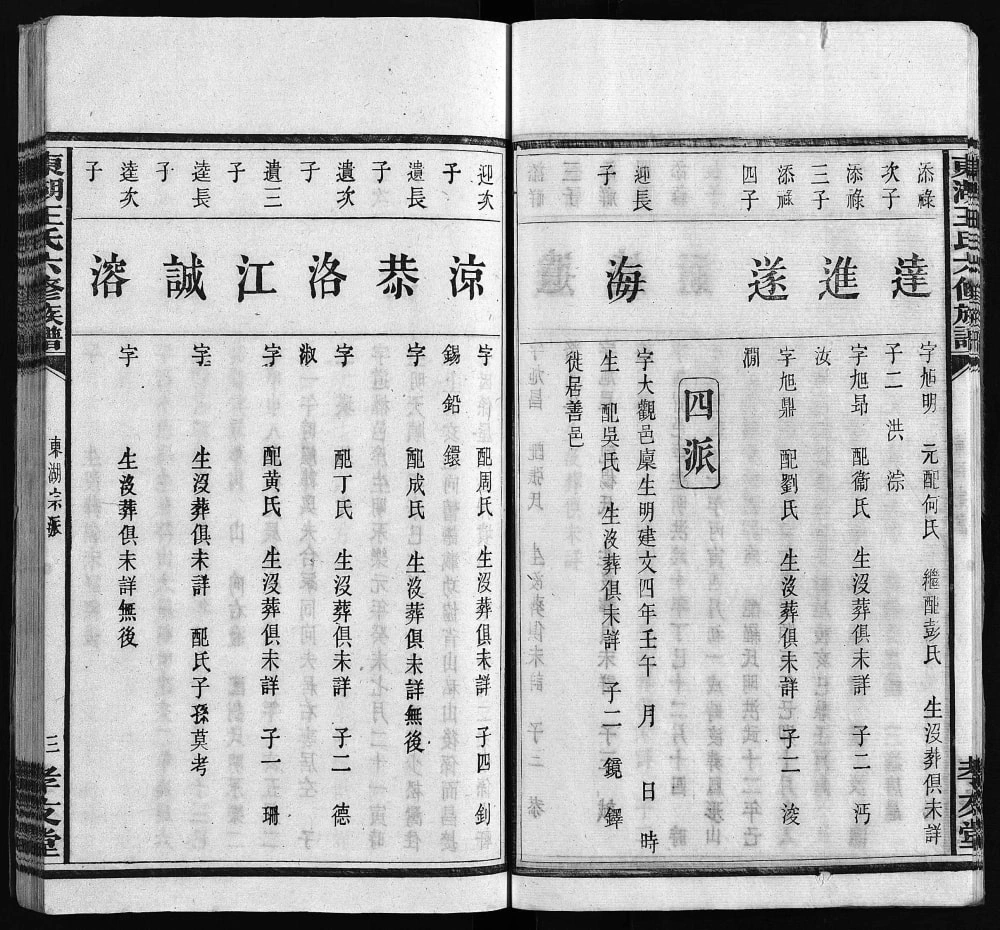 東湖王氏六修族譜
孝友堂
添祿次子
達
字旭明 元配何氏 繼配彭氏 生沒葬俱未詳
子二 洪 淙
添祿三子
進
字旭昻 配衞氏 生沒葬俱未詳 子二 沔
汝
添祿四子
遂
字旭鼎 配劉氏 生沒葬俱未詳 子二 浚
澗
四派
迎長子
海
字大觀邑廩生明建文四年壬午 月 日 時
生 配吳氏 生沒葬俱未詳 子二 鏡 鐸
徙居善邑
迎次子
涼
字 配周氏 生沒葬俱未詳 子四 釗
錫 鉛 鐶
遺長子
恭
字 配成氏 生沒葬俱未詳無後
遺次子
洛
字 配丁氏 生沒葬俱未詳 子二 德
淑
遺三子
江
字 配黃氏 生沒葬俱未詳 子一 珊
逵長子
誠
字 生沒葬俱未詳 配氏子孫莫考
逵次子
溶
字 生沒葬俱未詳無後
東湖王氏六修族譜
東湖宗派
三
孝友堂